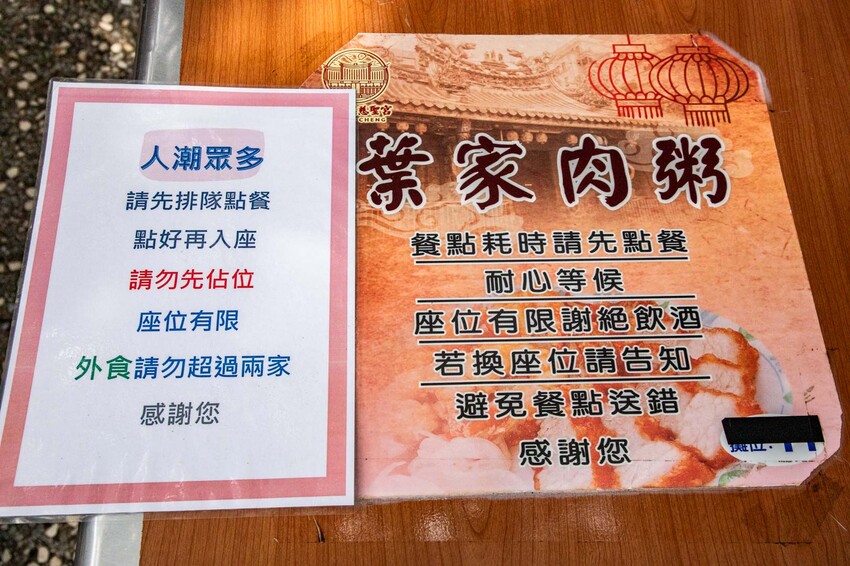 人潮眾多
請先排隊點餐
點好再入座
請勿先佔位
座位有限
外食請勿超過兩家
感謝您
聖宮
CHENG
葉家肉粥
餐點耗時請先點餐
耐心等候
座位有限謝絕飲酒
若換座位請告知
避免餐點送錯
感謝您
攤位: